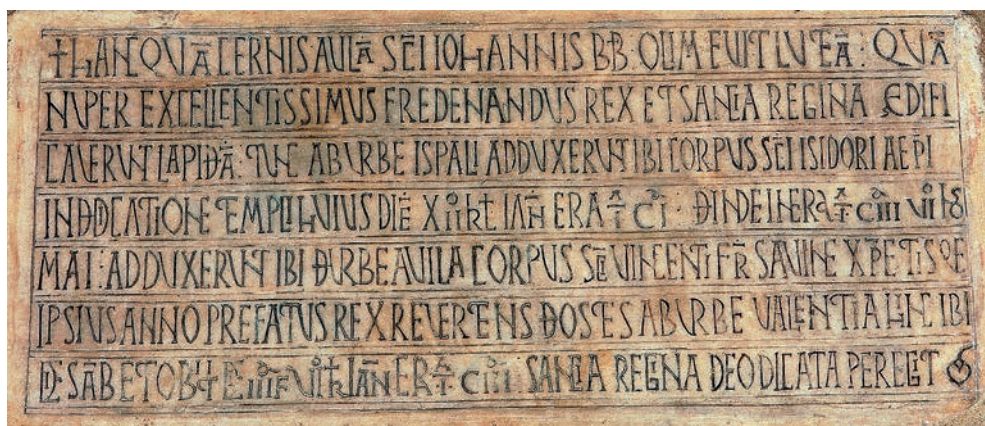 † HANC QVĀ CERNIS AULĀ SC̄I IOHANNIS BB̄. OLIM FUIT LVTEĀ : QVĀ
NVPER EXCELLENTISSIMUS FREDENANDUS REX ET SANCIA REGINA EDIFI
CAVERVT LAPIDEĀ : TVC AB VRBE ISPALI ADDVXERVNT IBI CORPUS SC̄I ISIDORI AEPI
IN DEDICATIONE TEMPLI HVIUS DIĒ XII KL IAN̄ ERA T CI · DEINDE IN ERA T CIII VI ID
MAI : ADDUXERVT IBI DE VRBE AVILA CORPUS SC̄I VINCENTI FR̄ SAVINE XPETISQE
IPSIUS ANNO PREFATUS REX REVERTENS DE HOSTES AB VRBE VALENTIA HINC IBI
DIE SAB̄B ET OBIIT VI KL IAN̄ ERA T CIII SANCIA REGINA DEO DICATA PEREGIT